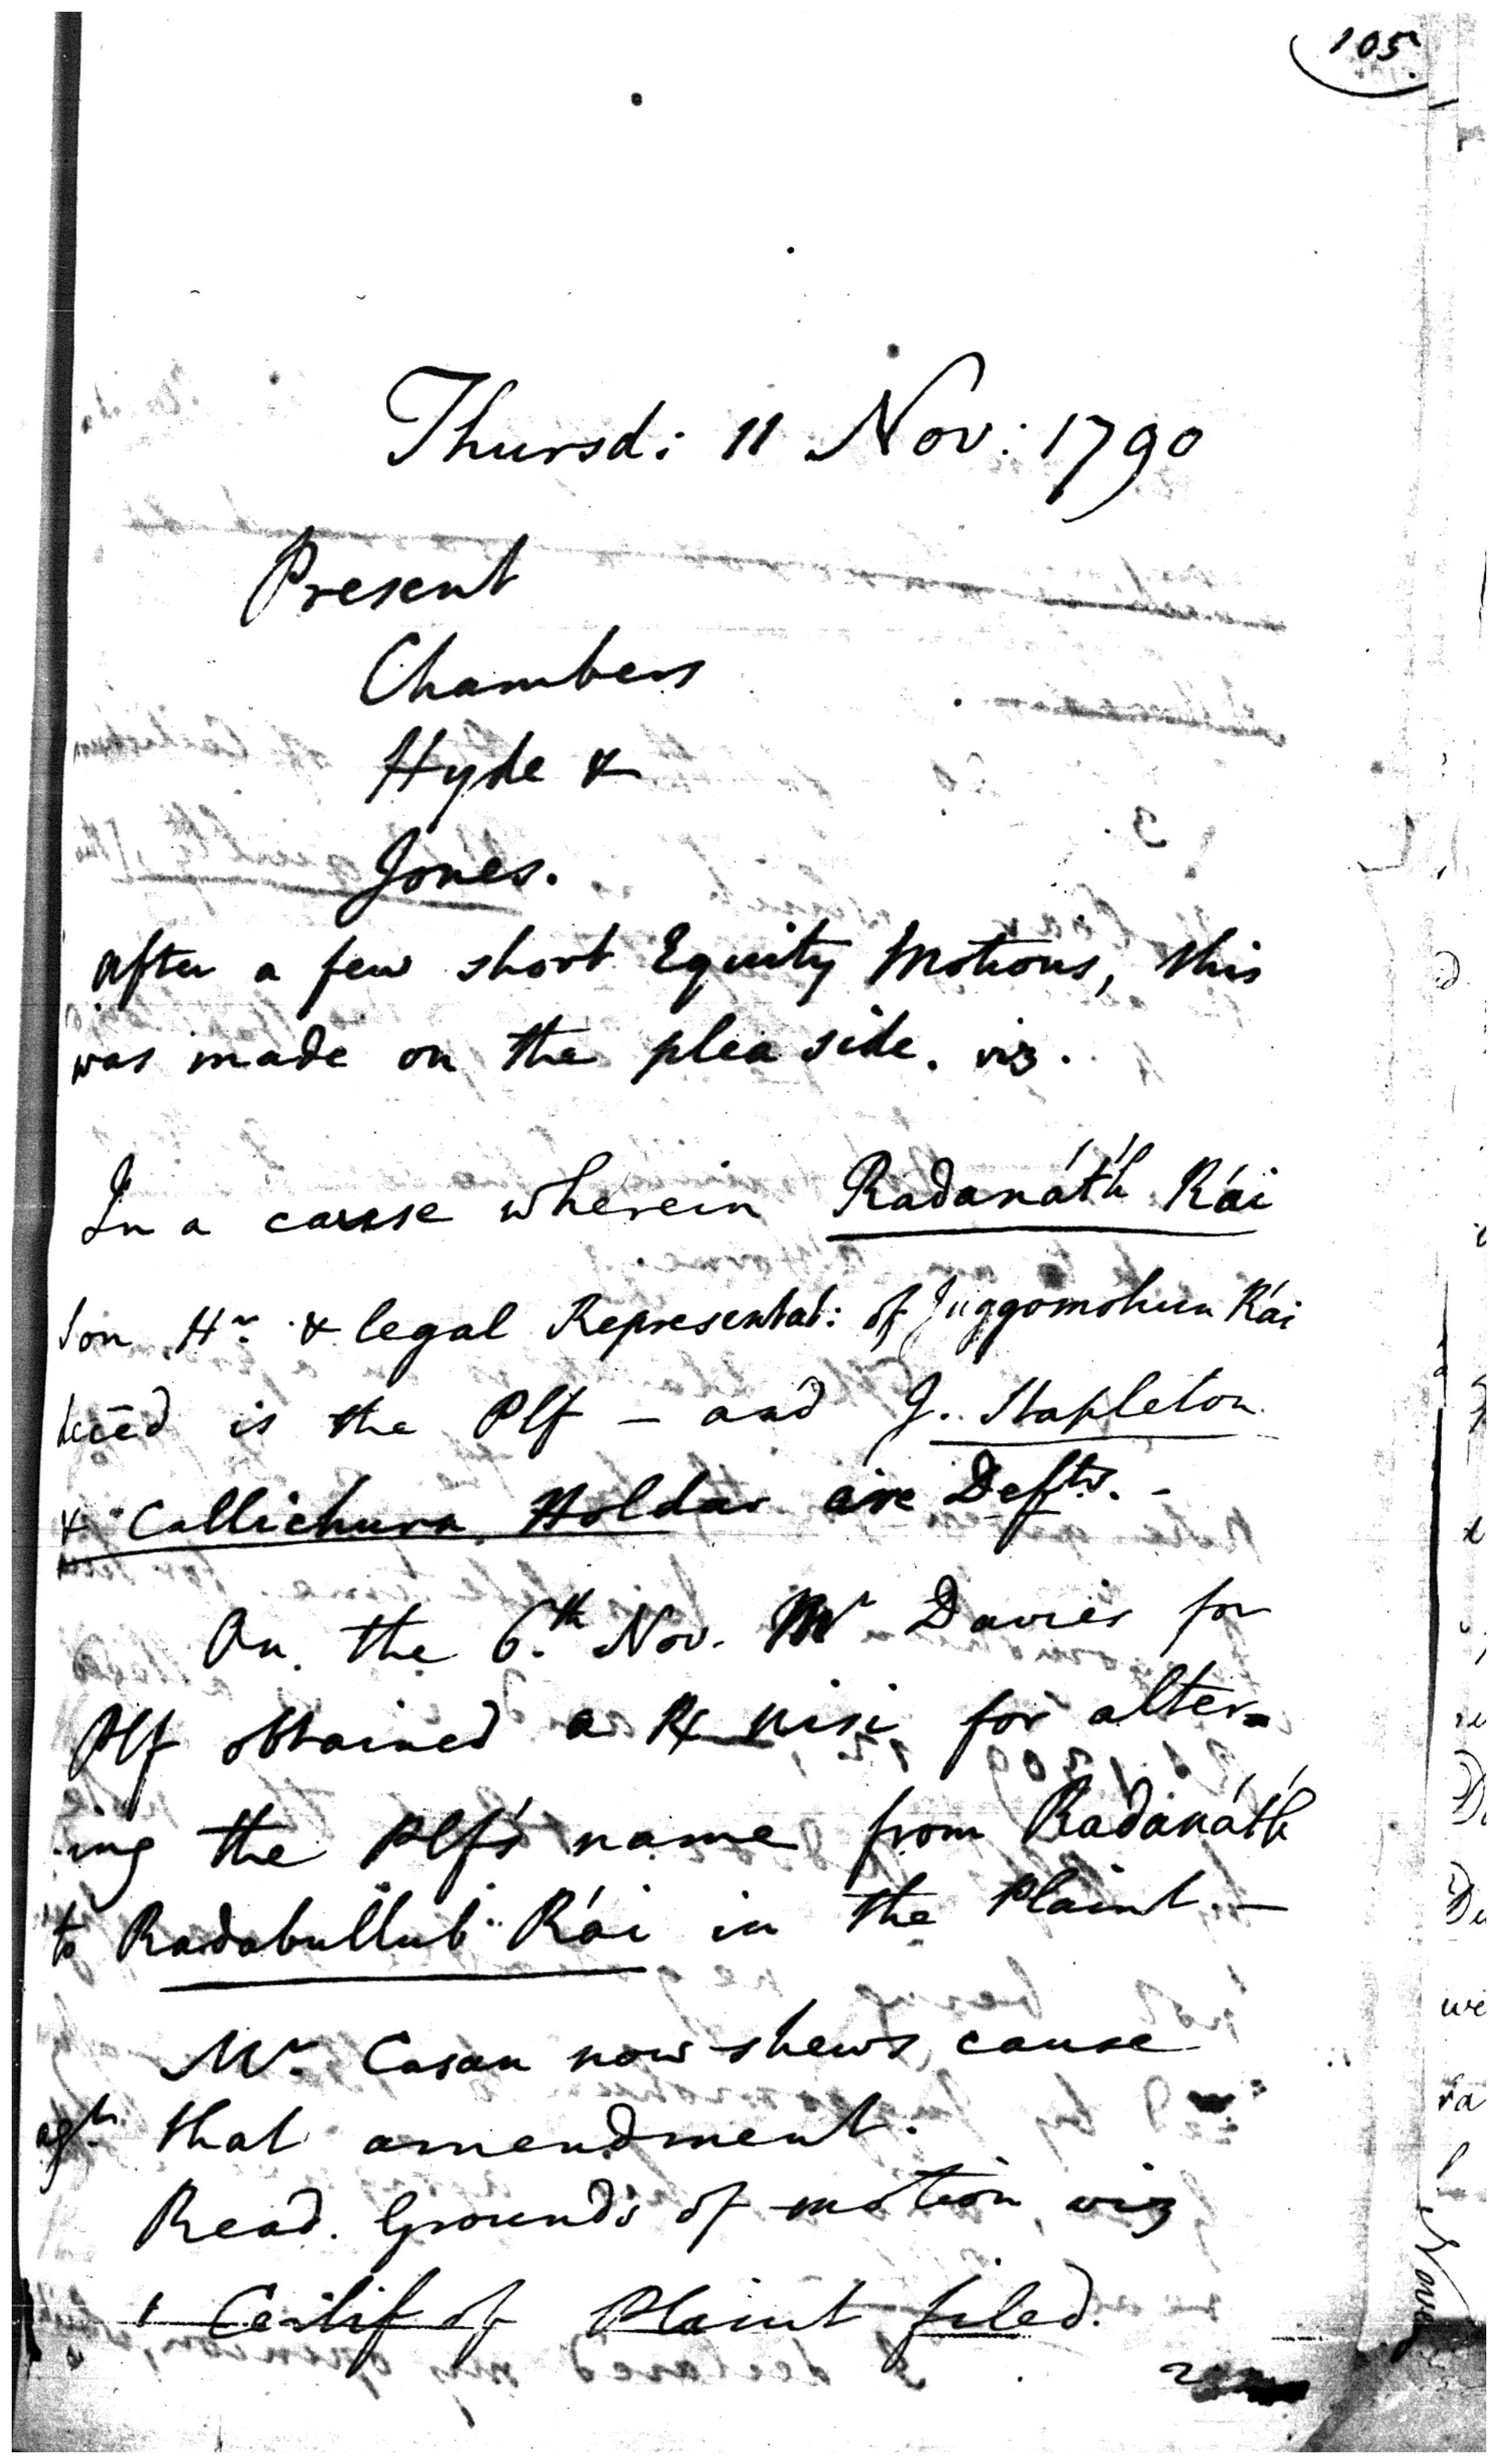 105
Thursd: 11 Nov: 1790
Present
Chambers
Hyde &
Jones.
after a few short Equity Motions, this
was made on the plea side. viz.
In a cause wherein Radanáth Rái
Son Hr & legal Representat: of Juggomohun Rái
decēd is the Plf – and J. Stapleton
& Callichurn Holdar are Defts. -
On the 6th Nov. Mr Davies for
Plf obtained a R nisi for alter=
ing the Plf's name from Radanáth
to Radabullub Rái in the Plaint. –
Mr Casan now shews cause
agt that amendment.
Read. Grounds of motion viz
1 Certif of Plaint filed.
2